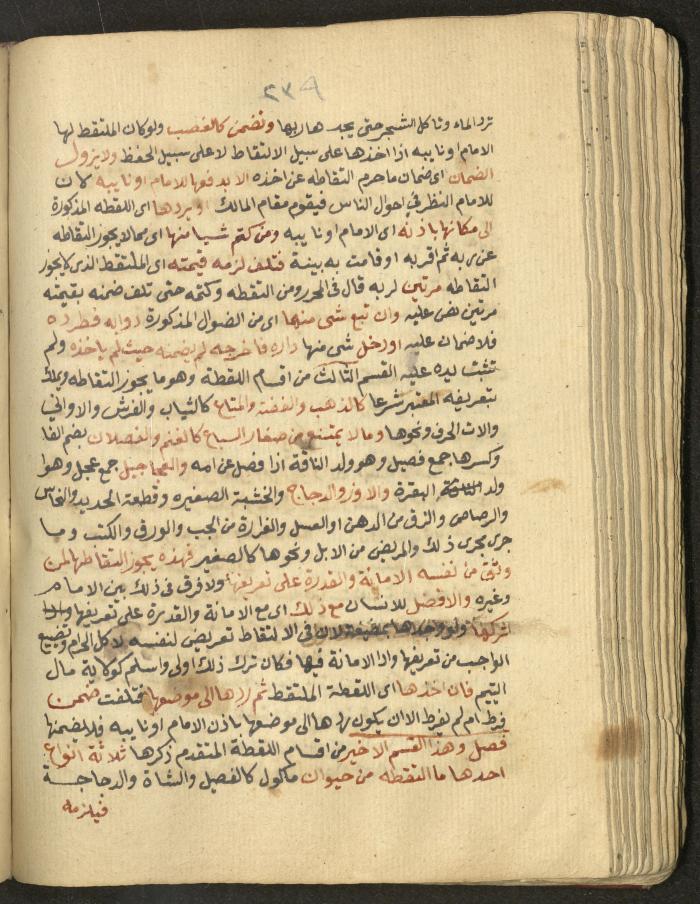 ٢٣٩
ترد الماء وتاكل الشجر حتى يجد هاربها وتضمن كالغصب ولوكان الملتقط لها
الامام او نايبه اذا اخذها على سبيل الالتقاط لا على سبيل الحفظ ولا يزول
الضمان اى ضمان ما حرم التقاطه عن اخذه الا بدفعها للامام او نايبه لان
للامام النظر في احوال الناس فيقوم مقام المالك او يردها اى اللقطه المذكورة
الى مكانها باذنه اى الامام او نايبه ومن كتم شيا منها اى مما لا يجوز التقاطه
عن ربه ثم اقر به او قامت به بينة فتلف لزمه قيمته اى الملتقط الذى لا يجوز
التقاطه مرتين لربه قال في المحرر ومن التقطه وكتمه حتى تلف ضمنه بقيمته
مرتين نص عليه وان تبع شى منها اى من الضوال المذكورة دوابه فطرده
فلا ضمان عليه او دخل شى منها داره فاخرجه لم يضمنه حيث لم ياخذه ولم
تثبت يده عليه القسم الثالث من اقسام اللقطة وهو ما يجوز التقاطه ويملك
بتعريفه المعتبر شرعا كالذهب والفضة والمتاع كالثياب والفرش والاوانى
والات الحرف ونحوها وما لا يمتنع من صغار السباع كالغنم والفصلان بضم الفا
وكسرها جمع فصيل وهو ولد الناقة اذا فصل عن امه والعجاجيل جمع عجل وهوا
ولد البقرة والاوز والدجاج والخشبة الصغيره وقطعة الحديد والنحاس
والرصاص والزق من الدهن او العسل والغرارة من الحب والورق والكتب وما
جرى مجرى ذلك والمريض من الابل ونحوها كالصغير فهذه يجوز التقاطها لمن
وثق من نفسه الامانة والقدرة على تعريفها ولا فرق في ذلك بين الامام
وغيره والافضل للانسان مع ذلك اى مع الامانة والقدرة على تعريفها
تركها ولو وجدها بمضيعة لان في الالتقاط تعريض لنفسه لاكل الحرام وتضيع
الواجب من تعريفها وادا الامانة فيها فكان ترك ذلك اولى واسلم كولاية مال
اليتيم فان اخذها اى اللقطة الملتقط ثم ردها الى موضعها فتلفت ضمن
فرط ام لم يفرط الا ان يكون ردها الى موضعها باذن الامام او نايبه فلا يضمنها
فصل وهذا القسم الاخير من اقسام اللقطة المتقدم ذكرها ثلاثة انواع
احدها ما التقطه من حيوان ماكول كالفصيل والشاة والدجاجة
فيلزمه